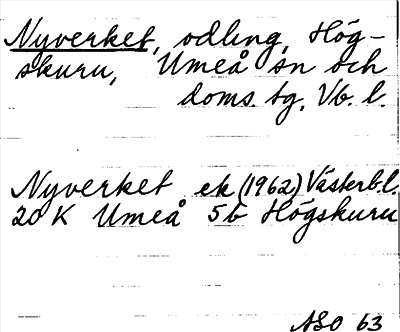 Nyverket, odling, Hög-
skuru, Umeå sn och
doms. tg. Vb. l.
Nyverket ek (1962) Västerb. l.
20 K Umeå 5b Högskuru
ASO 63